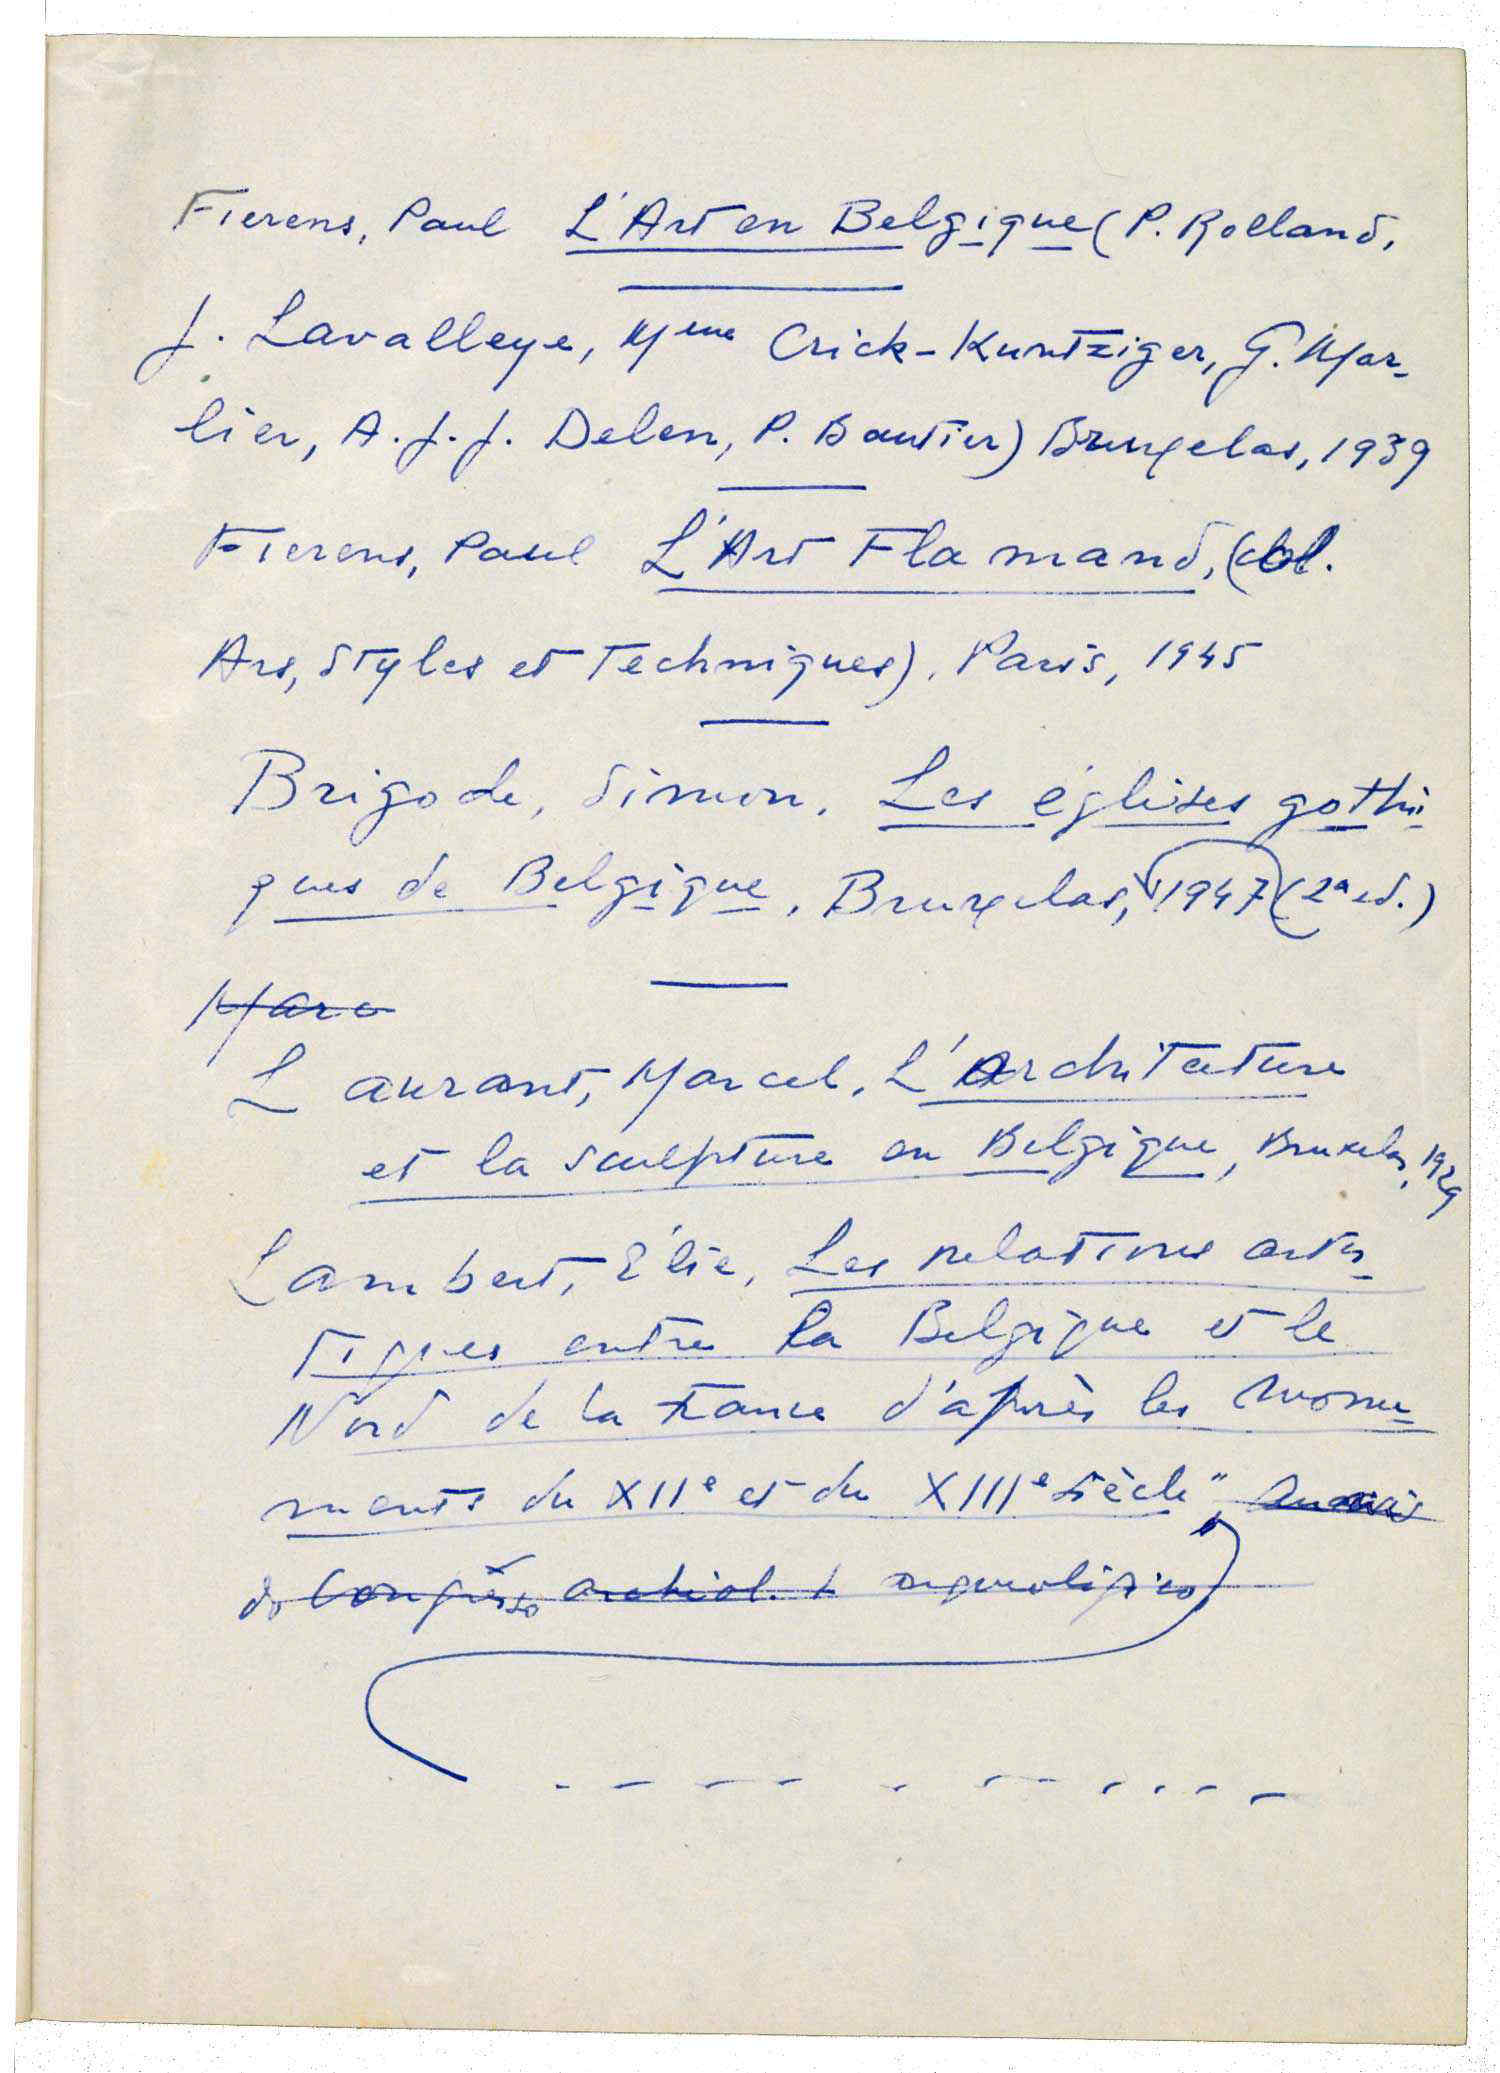 Fierens, Paul L'Art en Belgique (P. Rolland,
J. Lavalleye, Mme Crick-Kuntziger, G. Mar-
lier, A. J. J. Delen, P. Bautier) Bruxelas, 1939
Fierens, Paul L'Art Flamand, (col.
Ars, Styles et Techniques). Paris, 1945
Brigode, Simon. Les églises gothi
ques de Belgique, Bruxelas, 1947 (2ª ed.)
Marc
Laurant, Marcel. L'Architecture
et la sculpture en Belgique, Bruxelas, 1929
Lambert, Élie, Les relations artis-
tiques entre la Belgique et le
Nord de la France d'après les monu-
ments du XIIe et du XIIIe siècle",
do Congresso archéol.